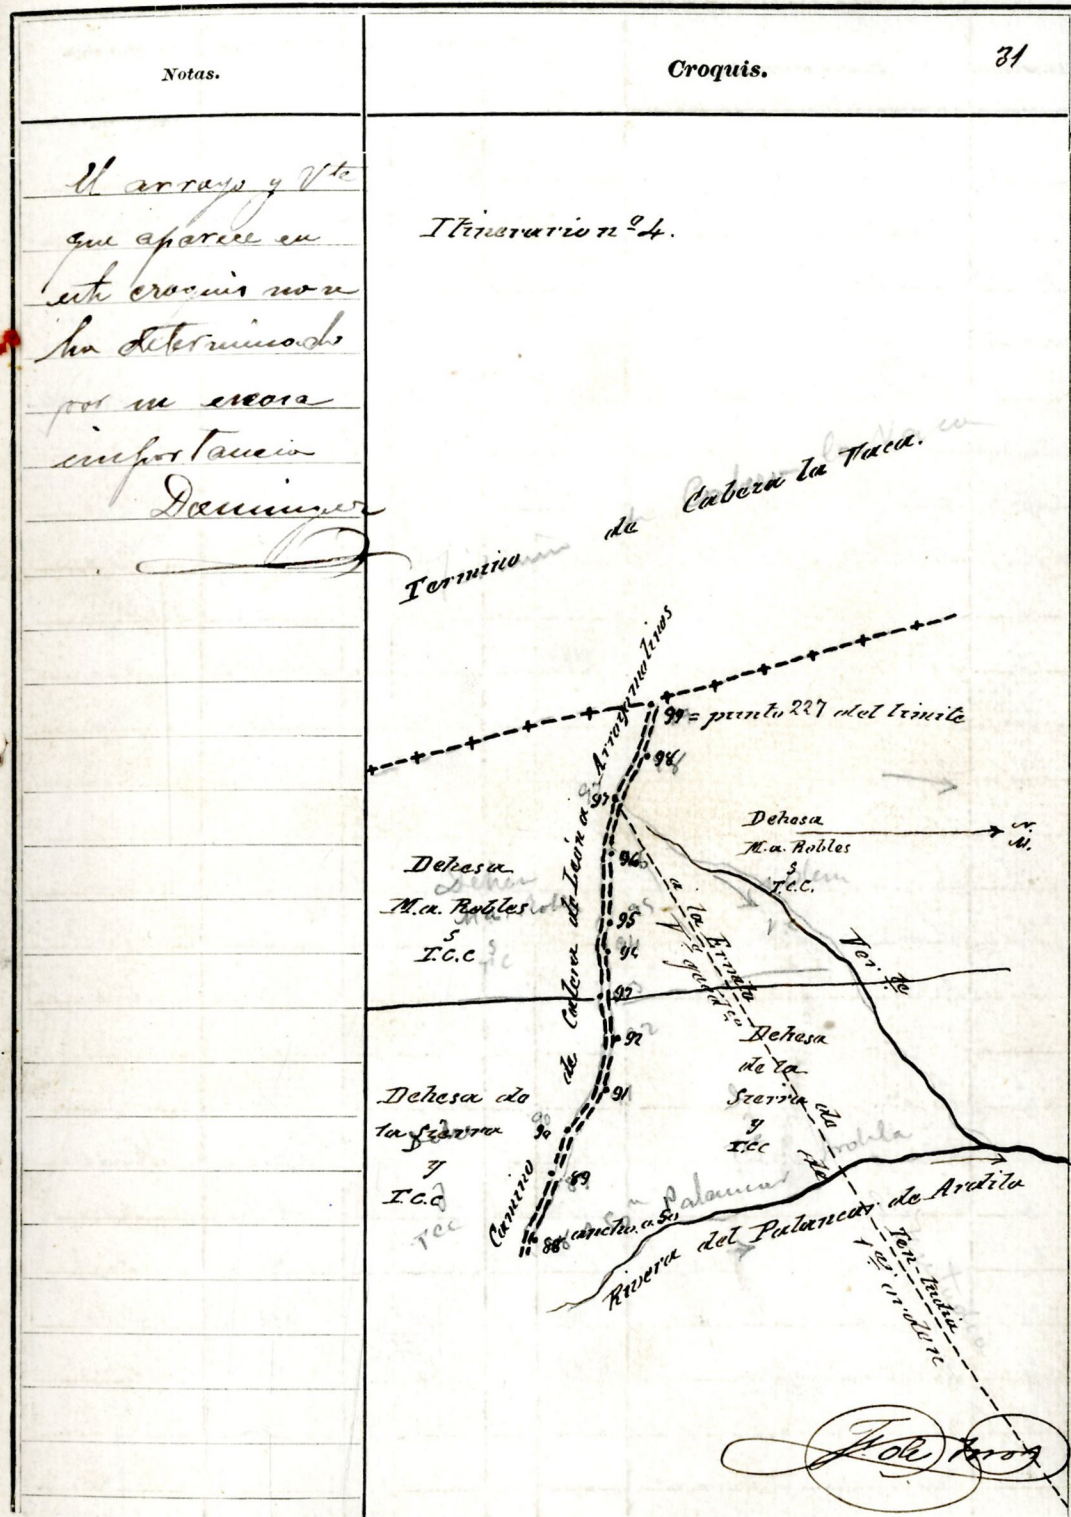 Notas.
Croquis.
31
El arroyo y Vte
que aparece en
este croquis no se
ha determinado
por su escasa
importancia
Dominguez
Itinerario nº 4.
Termino de Cabeza la Vaca.
99 = punto 227 del limite
98
97
96
95
94
93
92
91
90
89
88 ancho a 50
Camino de Calera de León a Arroyomolinos
Dehesa
M.a. Robles
y
T.C.C.
N.
M.
Dehesa
M.a. Robles
y
I.C.C
Vertte
a la Ermita de Ten-tudia
Vte de 1er orden
Dehesa
de la
Sierra
y
I.CC
Dehesa de
la Sierra
y
I.C.C
Rivera del Palancar de Ardila
F. de